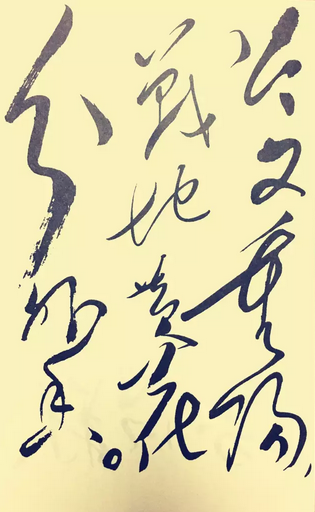 今又重陽，
戰地黄花
分外香。